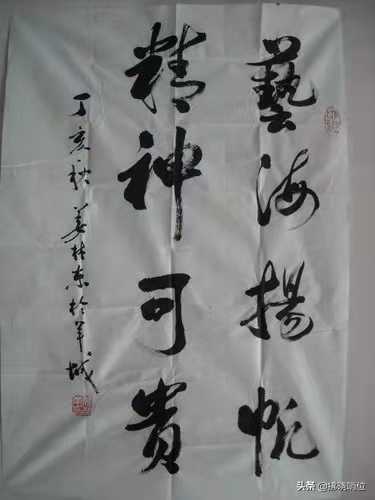 藝海揚帆
精神可貴
丁亥秋姜林東於羊城
头条 @拂晓哨位